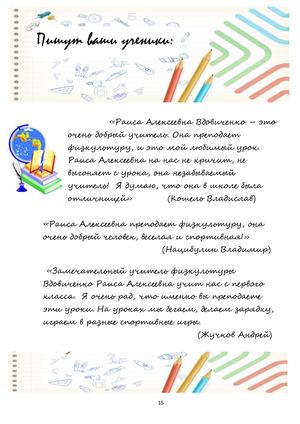 Пишут ваши ученики:
«Раиса Алексеевна Вдовиченко – это
очень добрый учитель. Она преподает
физкультуру, и это мой любимый урок.
Раиса Алексеевна на нас не кричит, не
выгоняет с урока, она незабываемый
учитель! Я думаю, что она в школе была
отличницей» (Кошель Владислав)
«Раиса Алексеевна преподает физкультуру, она
очень добрый человек, веселая и спортивная!»
(Нацибулин Владимир)
«Замечательный учитель физкультуры
Вдовиченко Раиса Алексеевна учит нас с первого
класса. Я очень рад, что именно вы преподаете
эти уроки. На уроках мы бегаем, делаем зарядку,
играем в разнее спортивные игры.
(Жучков Андрей)
15